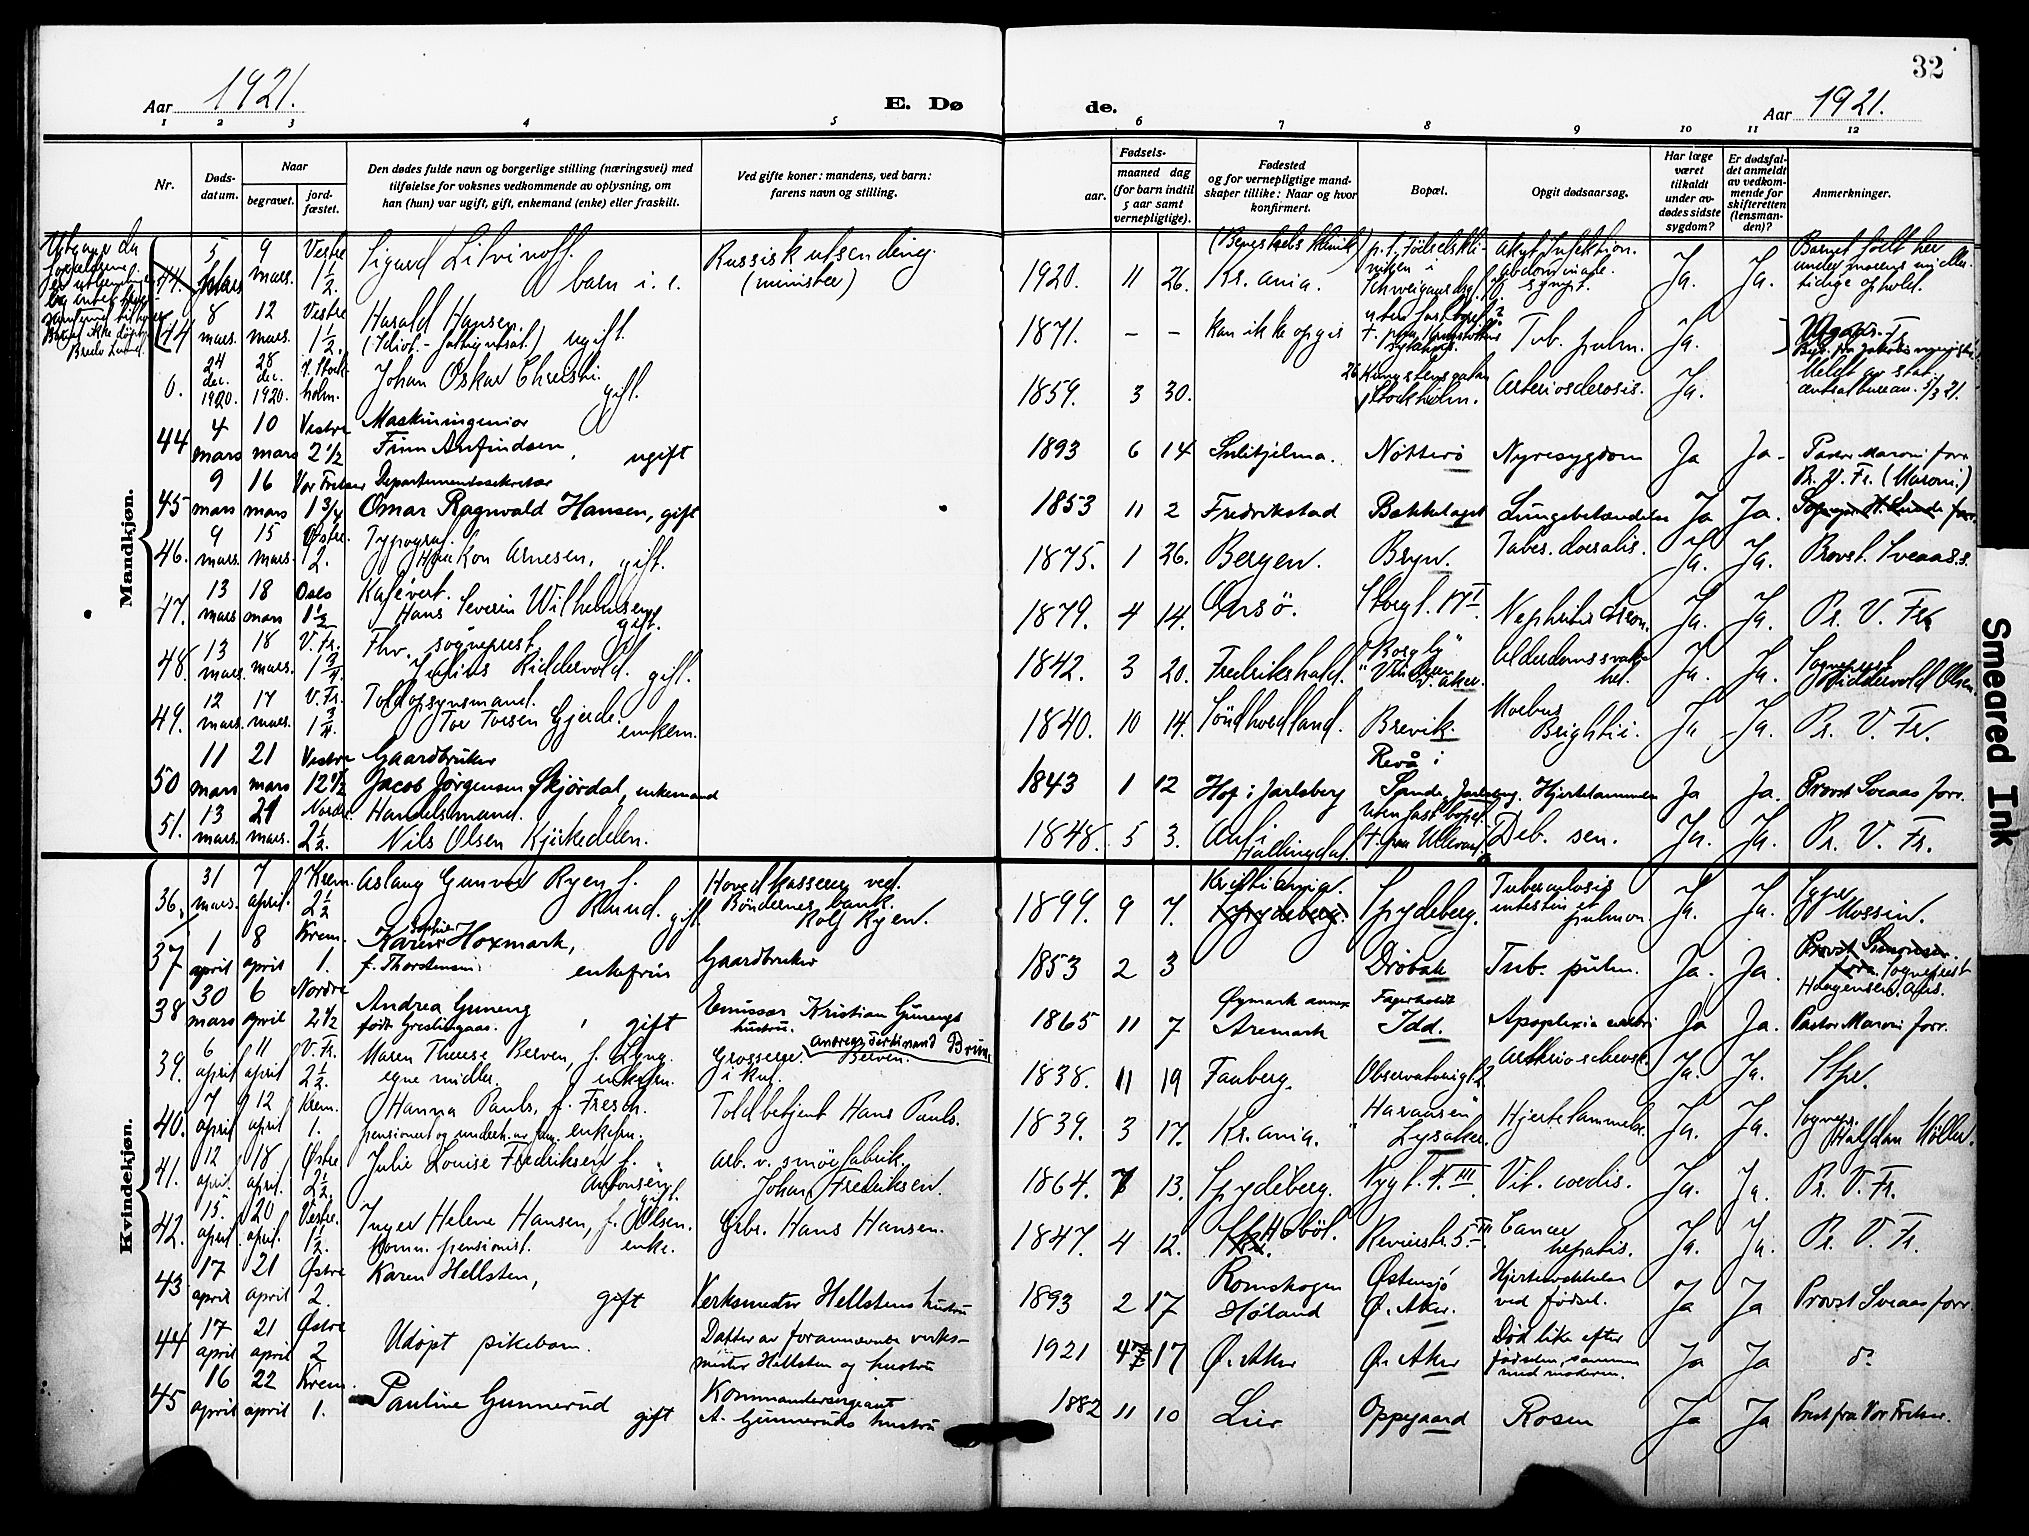 32
Aar 1921.
E. Dø
de.
Aar 1921.
1 2 3 4 5 6 7 8 9 10 11 12
Nr.
Døds-
datum.
Naar
begravet.
jord-
fæstet.
Den dødes fulde navn og borgerlige stilling (næringsvei) med
tilføielse for voksnes vedkommende av oplysning, om
han (hun) var ugift, gift, enkemand (enke) eller fraskilt.
Ved gifte koner: mandens, ved barn:
farens navn og stilling.
Fødsels-
aar.
maaned dag
(for barn indtil
5 aar samt
vernepligtige).
Fødested
og for vernepligtige mand-
skaper tillike: Naar og hvor
konfirmert.
Bopæl.
Opgit dødsaarsag.
Har læge
været
tilkaldt
under av-
dødes sidste
sygdom?
Er dødsfal-
det anmeldt
av vedkom-
mende for
skifteretten
(lensman-
den)?
Anmerkninger.
Mandkjøn.
44. 5 mars 9 mars. Vestre 1 1/2. Sigurd Litvinoff. barn i. e. Russisk utsending. (minister) 1920. 11 26. Kr.ania. Akut infektion. Ja. Ja. Barnet født her
44 8 mars. 12 mars. Vestre 1 1/2. Harald Hansen. ugift. 1871. - - Kan ikke opgis Tub. pulm. Ja. Utgaar.
0. 24 dec. 1920. 28 dec. 1920. Stockholm. Johan Oskar Christi. gift. 1859. 3 30. 26 Kungstensgatan Stockholm. Arteriosclerosis. Ja. Meldt av stat. centralbureau. 5/3 21.
44 4 mars 10 mars Vestre 2 1/2 Maskiningeniør Finn Anfindsen, ugift 1893 6 14 Sulitjelma. Nøtterø Nyresygdom Ja Ja. Pastor Maroni forr.
45 9 mars 16 mars Vor Frelser 1 3/4 Departementssekretær Omar Ragnvald Hansen, gift 1853 11 2 Fredrikstad Bækkelaget Lungebetændelse Ja Ja. Pr. V. Fr. (Maroni.)
46. 9 mars. 15 mars. Østre. 2. Typograf. Haakon Arnesen. gift. 1875. 1 26. Bergen. Bryn. Tabes. dorsalis. Ja. Ja. Provst. Sveaas.
47. 13 mars 18 mars Oslo 1 1/2 Kafévert. Hans Severin Wilhelmsen. gift. 1879. 4 14. Onsö. Storgt. 17 I Nephritis chron. Ja. Ja. Pr. V. Fr.
48. 13 mars. 18 mars. V. Fr. 1 3/4 Fhv. sogneprest. Julius Riddervold. gift. 1842. 3 20. Fredrikshald. "Borgly" Vinderen V. Aker. Alderdomssvakhet. Ja. Ja. Sogneprest Riddervold Olsen.
49. 12 mars. 17 mars. V. Fr. 1 3/4. Toldopsynsmand. Tov Torsen Gjerde. enkem. 1840. 10 14. Söndhordland. Brevik. Morbus Brightii. Ja Ja. Pr. V. Fr.
50 11 mars 21 mars Vestre 12 1/2 Gaardbruker Jacob Jørgensen Skjørdal, enkemand 1843 1 12 Hof i Jarlsberg Revå i Sande, Jarlsberg. Hjertelammelse Ja Ja. Provst Sveaas forr.
51. 13 mars. 21 mars. Nordre 2 1/2. Handelsmand. Nils Olsen Kjirkedelen. 1848. 5 3. Aal i Hallingdal. Uten fast bopæl. † fra Ullevaal. Deb. sen. Ja. Ja. Pr. V. Fr.
Kvindekjøn.
36. 31 mars. 7 april. Krem. 2 1/2 Aslaug Gunvor Ryen f. Ruud. gift. Hovedkasserer ved. Bøndernes bank. Rolf Ryen. 1899. 9 7. Kristiania. Spydeberg. Tuberculosis intestin et pulmon. Ja. Ja. Sgpr. Mossin.
37 1 april 8 april Krem. 1. Karen Hoxmark, f. Thorstensen enkefru Gaardbruker 1853 2 3 Drøbak Tub. pulm. Ja. Ja. Sogneprest Haagensen, Aas.
38 30 mars 6 april Nordre 2 1/2 Andrea Gureng født Greslingaas. gift Emissær Kristian Gurengs hustru. 1865 11 7 Øymark annex Aremark Fagerholdt Idd. Apoplexia cerebri Ja Ja. Pastor Maroni forr.
39. 6 april 11 april V. Fr. 2 1/2. Maren Therese Berven, f. Lyng. egne midler. enkefru. Grosserer Andreas Ferdinand Bruun Berven. i kul. 1838. 11 19 Faaberg. Observatoriegt. 2 Arteriosclerosis. Ja. Ja. Stpr.
40. 7 april 12 april Krem. 1. Hanna Pauls, f. Fresch. enkefru. Toldbetjent Hans Pauls. 1839. 3 17. Kr.ania. Lysaker. Hjertelammelse. Ja. Ja. Sognepr. Halfdan Møller.
41. 12 april. 18 april. Østre 2 1/2. Julie Louise Fredriksen f. Antonsen. gift. Arb. v. smörfabrik. Johan Fredriksen. 1864. 7 13. Spydeberg. Nygt. 4. III Vit. cordis. Ja. Ja. Pr. V. Fr.
42. 15. april. 20 april. Vestre. 1 1/2. Inger Helene Hansen, f. Olsen. Komm. pensionist. enke. Gbr. Hans Hansen. 1847. 4 12. Hobøl. Revierstr. 5 III Cancer hepatis. Ja. Ja. Pr. V. Fr.
43 17 april 21 april Østre 2. Karen Hellsten, gift Verksmester Hellstens hustru 1893 2 17 Romskogen Høland Østensjø Ø. Aker. Hjertelammelse ved fødsel. Ja Ja Provst Sveaas forr.
44 17 april 21 april Østre 2 Udøpt pikebarn. Datter av forannævnte verksmester Hellsten og hustru 1921 4 17 Ø. Aker Ø. Aker Død like efter fødselen, sammen med moderen. Ja Ja do
45 16 april 22 april Krem. 1. Pauline Gunnerud gift Kommandersergeant A. Gunneruds hustru 1882 11 10 Lier Oppegaard Rosen Ja Ja Prest fra Vor Frelser.
Smeared Ink